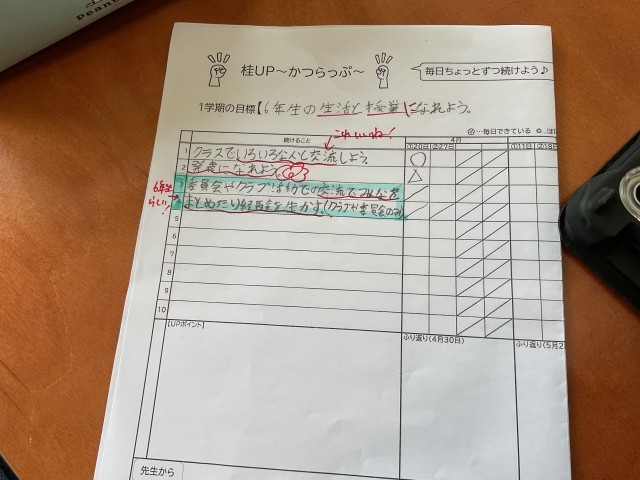 PEANU
桂UP～かつらっぷ～
毎日ちょっとずつ続けよう♪
1学期の目標【6年生の生活と授業になれよう。
これいいね!
◎…毎日できている ○…ほ
続けること
4月
1 クラスでいろいろな人と交流しよう。
2 発表になれよう
6年生らしい!
委員会やクラブ活動での交流でみんなを
まとめたり経験を生かす。(クラブや委員会のみ)
5
6
7
8
9
10
【UPポイント】
ふり返り(4月30日)
ふり返り(5月2
先生から